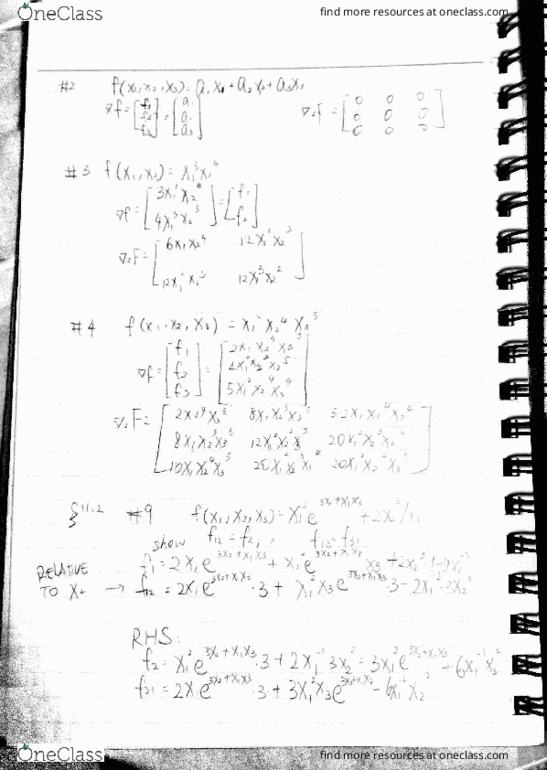 OneClass find more resources at oneclass.com
#2 f(x₁,x₂,x₃)=a₁x₁+a₂x₂+a₃x₃
∇f=[f₁ f₂ f₃]=[a₁ a₂ a₃] ∇₂F=[0 0 0
0 0 0
0 0 0]
#3 f(x₁,x₂)=x₁³x₂⁴
∇f=[3x₁²x₂⁴
4x₁³x₂³]=[f₁
f₂]
∇₂F=[6x₁x₂⁴ 12x₁²x₂³
12x₁²x₂³ 12x₁³x₂²]
#4 f(x₁,x₂,x₃)=x₁²x₂⁴x₃⁵
∇f=[f₁
f₂
f₃]=[2x₁x₂⁴x₃⁵
5x₁²x₂⁴x₃⁴]
∇₂F=[
8x₁x₂³x₃⁵ 12x₁²x₂²x₃⁵ 20x₁²x₂³x₃⁴
]
§11.2 #9 f(x₁,x₂,x₃)=x₁²e^(3x₂+x₁x₃)+2x₂³/x₁
show f₁₂=f₂₁, f₁₃=f₃₁
f₁=2x₁e^(3x₂+x₁x₃)+x₁²e^(3x₂+x₁x₃)x₃
RELATIVE
TO x₂ → f₁₂=2x₁e^(3x₂+x₁x₃)·3+x₁²x₃e^(3x₂+x₁x₃)·3-2x₁⁻²·3x₂²
RHS:
f₂=x₁²e^(3x₂+x₁x₃)·3+2x₁⁻¹3x₂²=3x₁²e^(3x₂+x₁x₃)+6x₁⁻¹x₂²
f₂₁=2x₁e^(3x₂+x₁x₃)·3+3x₁²x₃e^(3x₂+x₁x₃)-6x₁⁻²x₂²
OneClass find more resources at oneclass.com